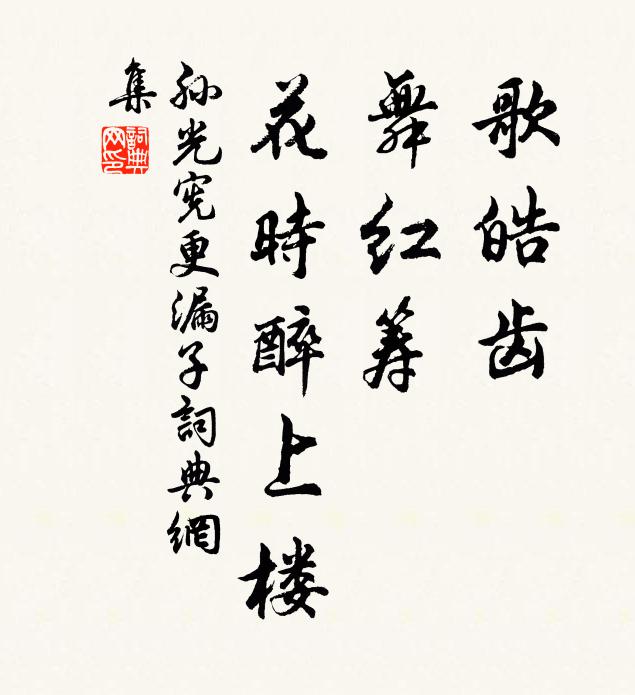 歌皓齿
舞红筹
花時醉上楼
孙光宪更漏子詞典網
集
詞典網印